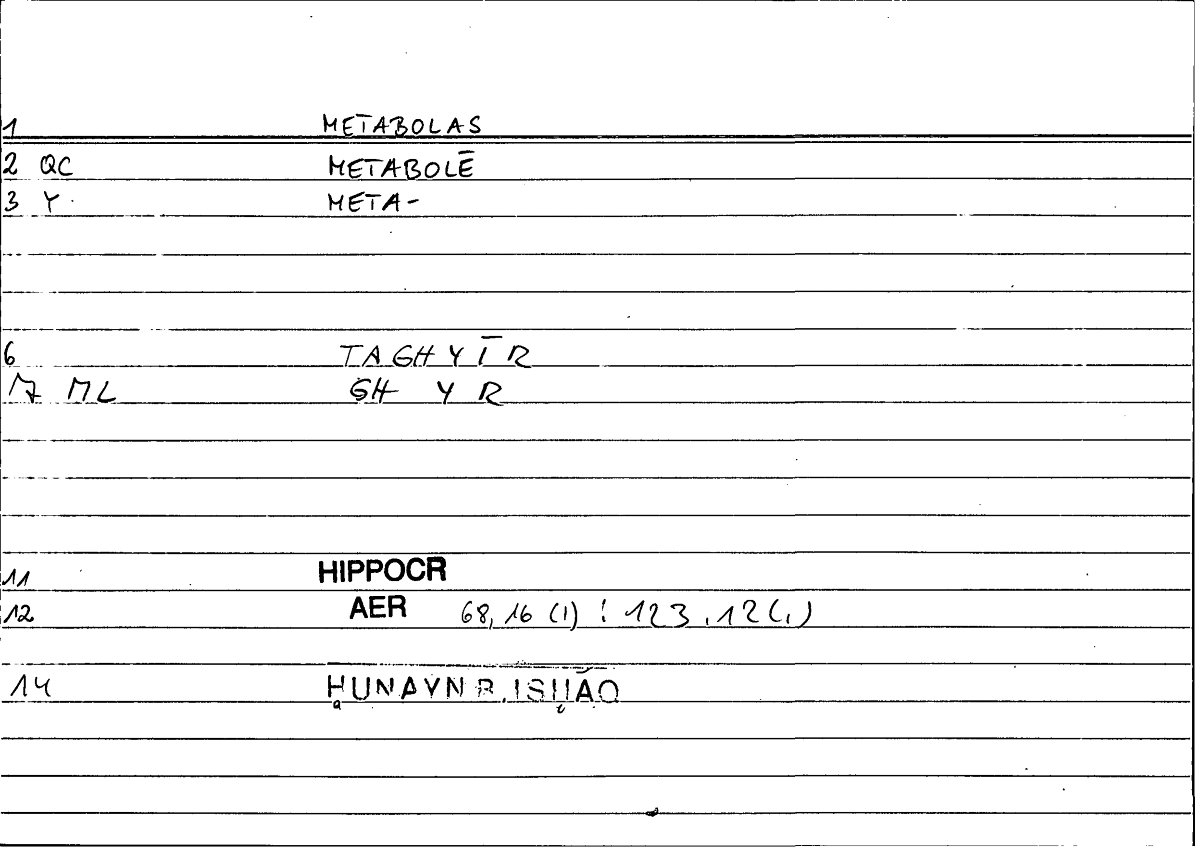 1 METABOLAS
2 QC METABOLĒ
3 Y META-
6 TAGHYĪR
7 ML GH Y R
11 HIPPOCR
12 AER 68,16 (1) : 123,12(,)
14 ḤUNAYN B. ISḤĀQ